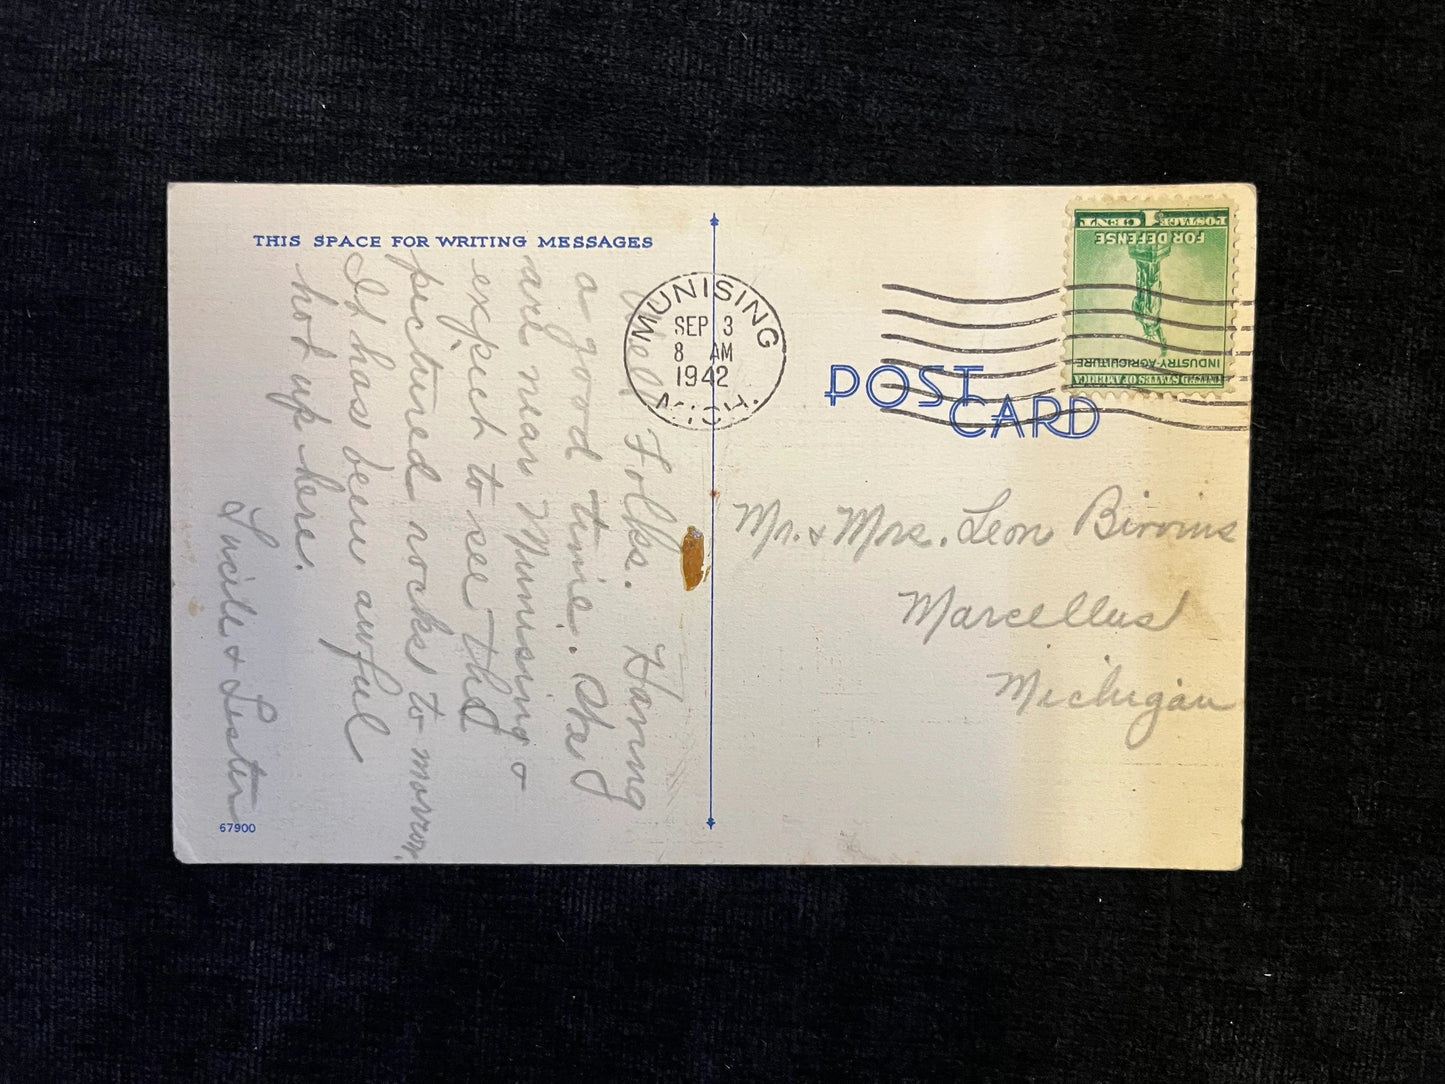 THIS SPACE FOR WRITING MESSAGES
Well Folks. Having
a good time.
are near Munising &
expect to see the
pictured rocks to morrow.
It has been awful
hot up here.
Lucile & Lester
67900
MUNISING
SEP 3
8 AM
1942
MICH.
POST CARD
1 CENT POSTAGE
FOR DEFENSE
INDUSTRY-AGRICULTURE
UNITED STATES OF AMERICA
Mr. & Mrs. Leon Birmms
Marcellus
Michigan